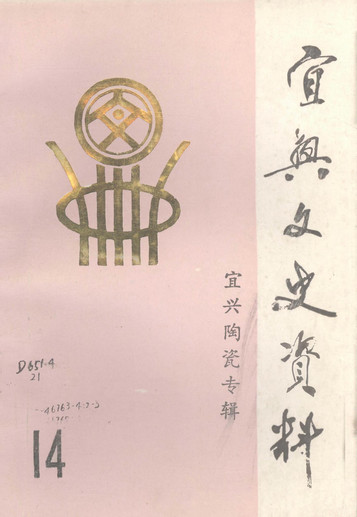 宜興文史資料
宜兴陶瓷专辑
D651.4
21
14